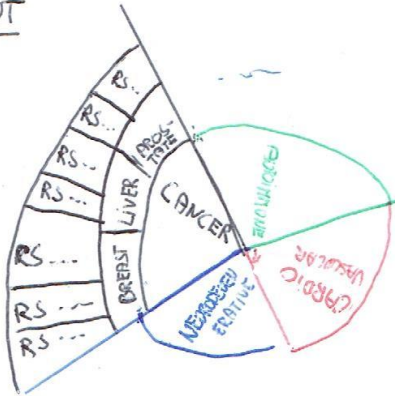 OT
RS...
RS...
RS...
RS...
RS...
RS...
RS...
PROS-
TATE
LIVER
BREAST
CANCER
AUTOIMMUNE
CARDIO
VASCULAR
NEURODEGEN
ERATIVE